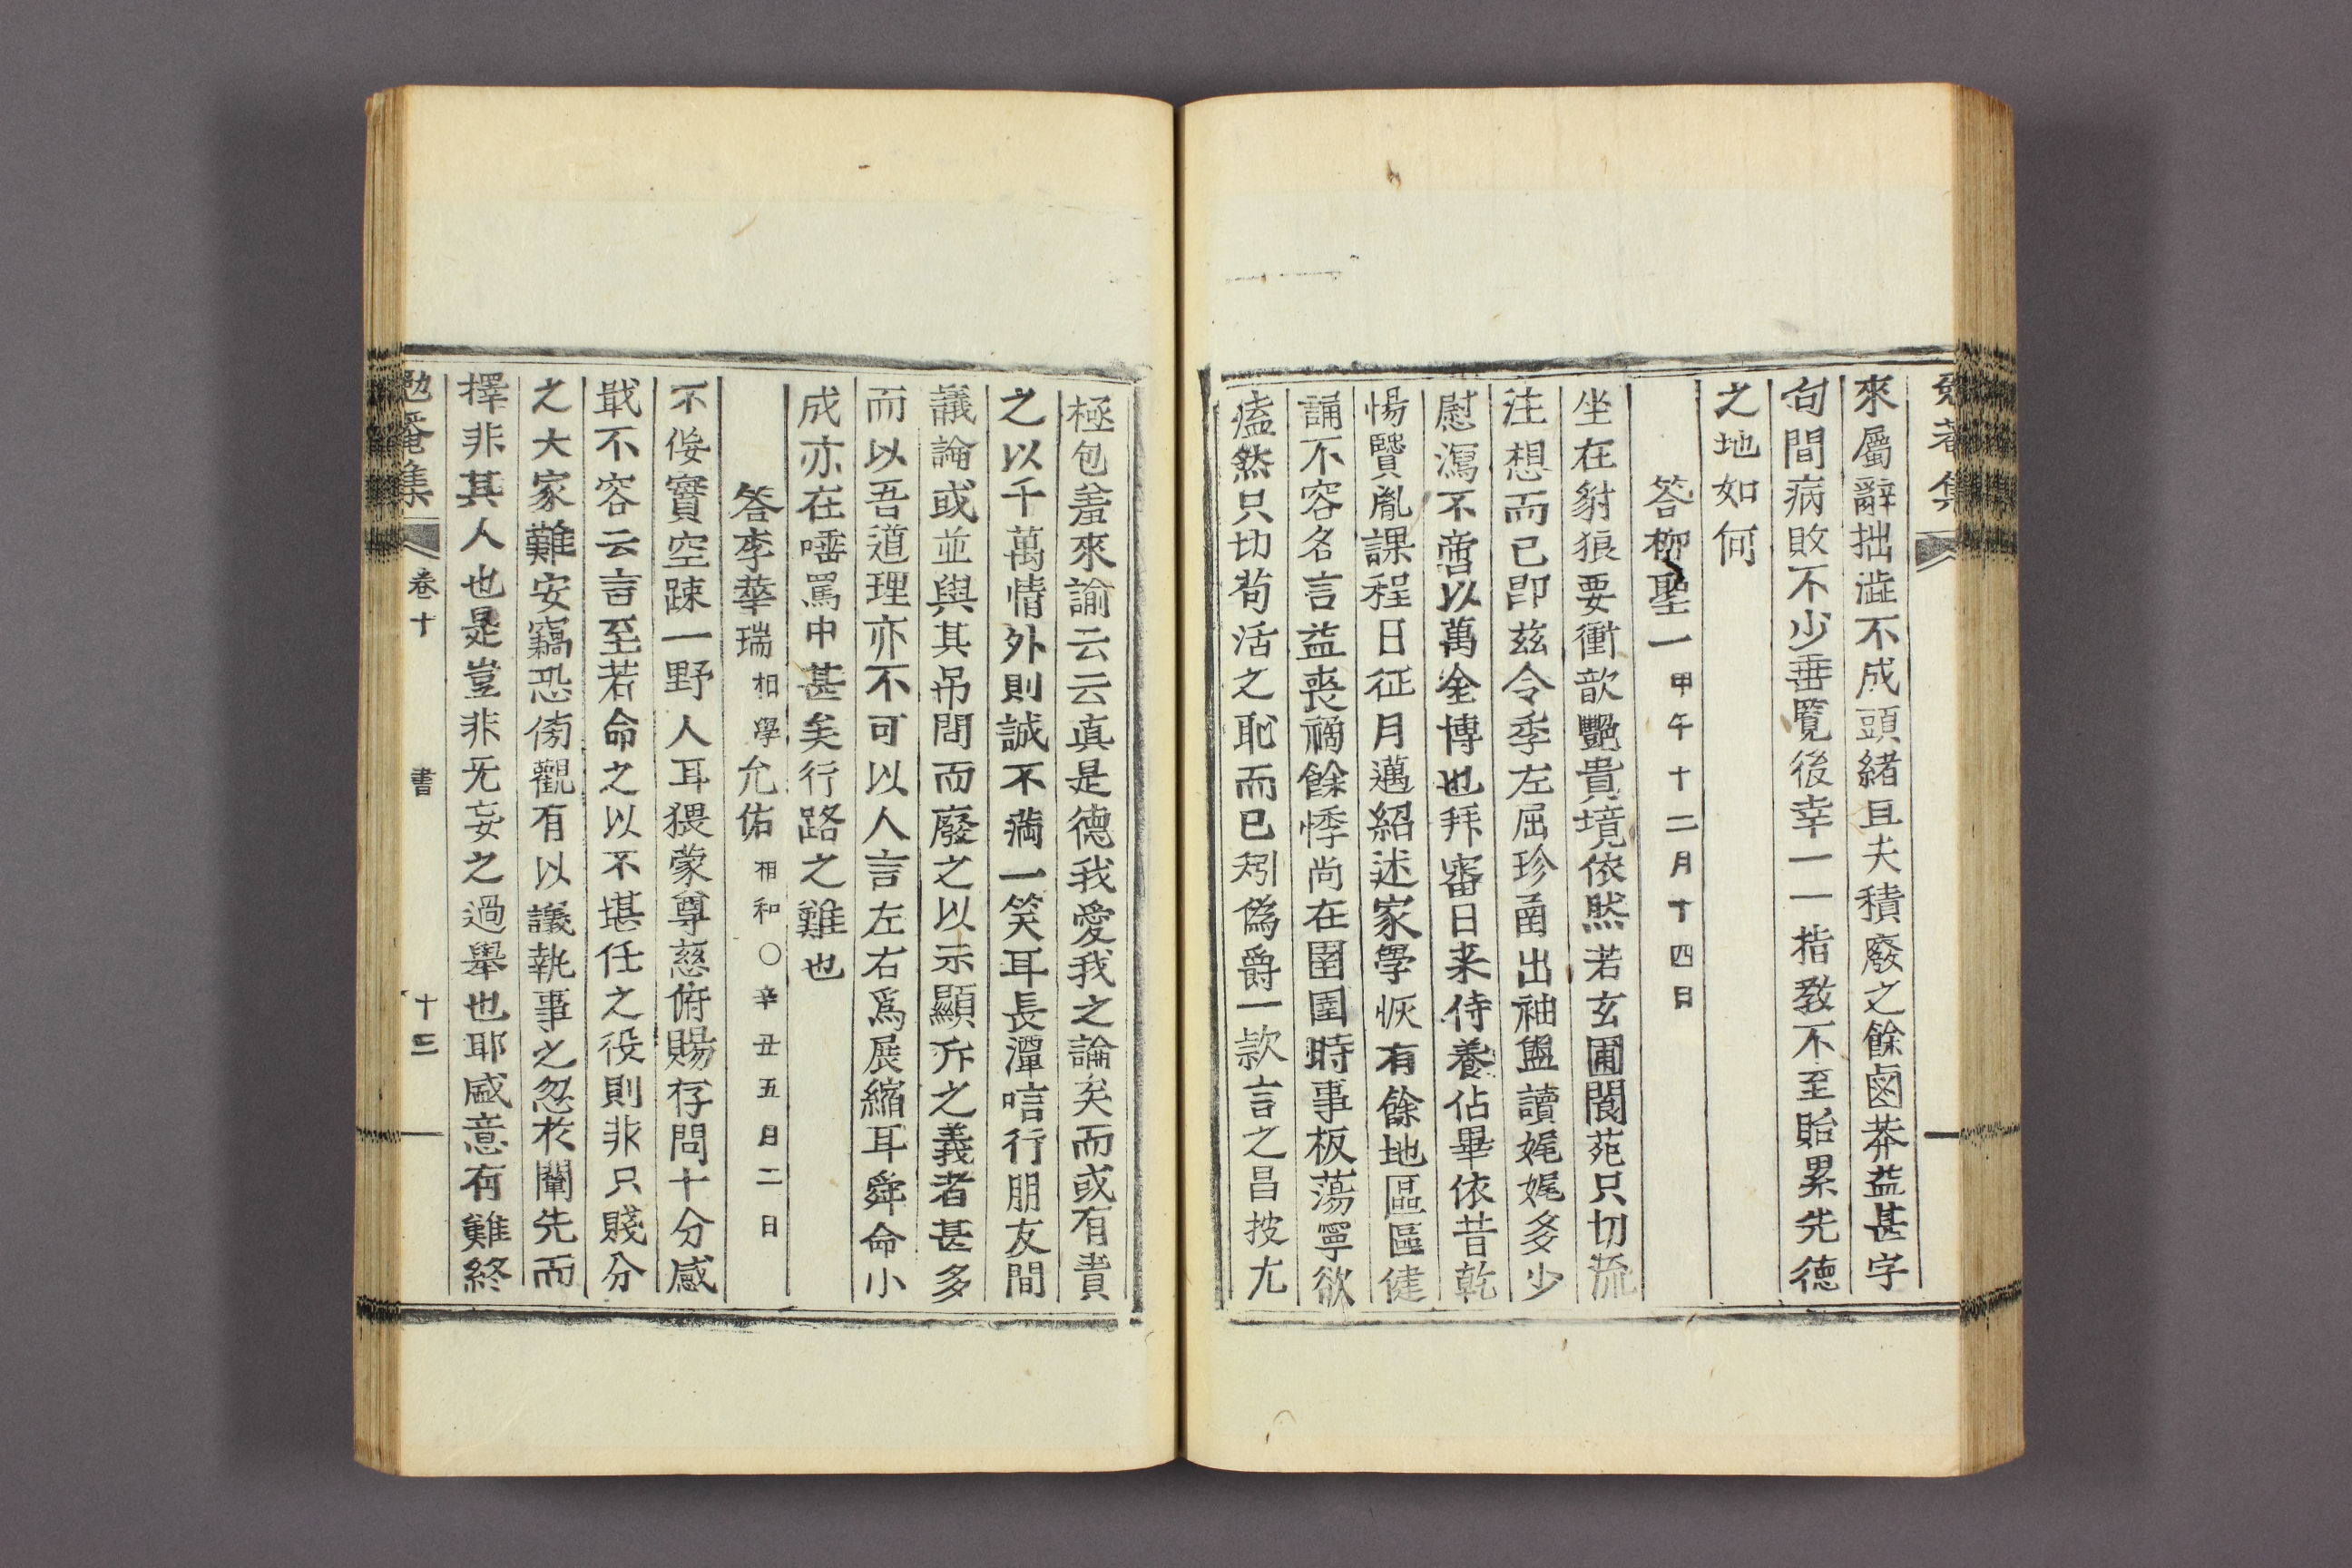 勉菴集
來屬辭拙澁不成頭緖且夫積廢之餘鹵莽益甚字
句間病敗不少垂覽後幸一一指敎不至貽累先德
之地如何
答柳聖一 甲午十二月十四日
坐在豺狼要衝歆艶貴境依然若玄圃閬苑只切流
注想而已卽玆令季左屈珍函出袖盥讀娓娓多少
慰瀉不啻以萬金博也拜審日來侍養佔畢依昔乾
惕贒胤課程日征月邁紹述家學恢有餘地區區健
誦不容名言益喪禍餘悸尚在圉圉時事板蕩寧欲
溘然只切苟活之恥而已矧僞爵一款言之昌披尤
極包羞來諭云云真是德我愛我之論矣而或有責
之以千萬情外則誠不滿一笑耳長潭唁行朋友間
議論或並與其吊問而廢之以示顯斥之義者甚多
而以吾道理亦不可以人言左右爲展縮耳舜命小
成亦在唾罵中甚矣行路之難也
答李華瑞 相學 允佑 相和○辛丑五月二日
不佞實空踈一野人耳猥蒙尊慈俯賜存問十分感
戢不容云言至若命之以不堪任之役則非只賤分
之大家難安竊恐傍觀有以議執事之忽於闡先而
擇非其人也是豈非无妄之過擧也耶盛意有難終
勉菴集 卷十 書 十三